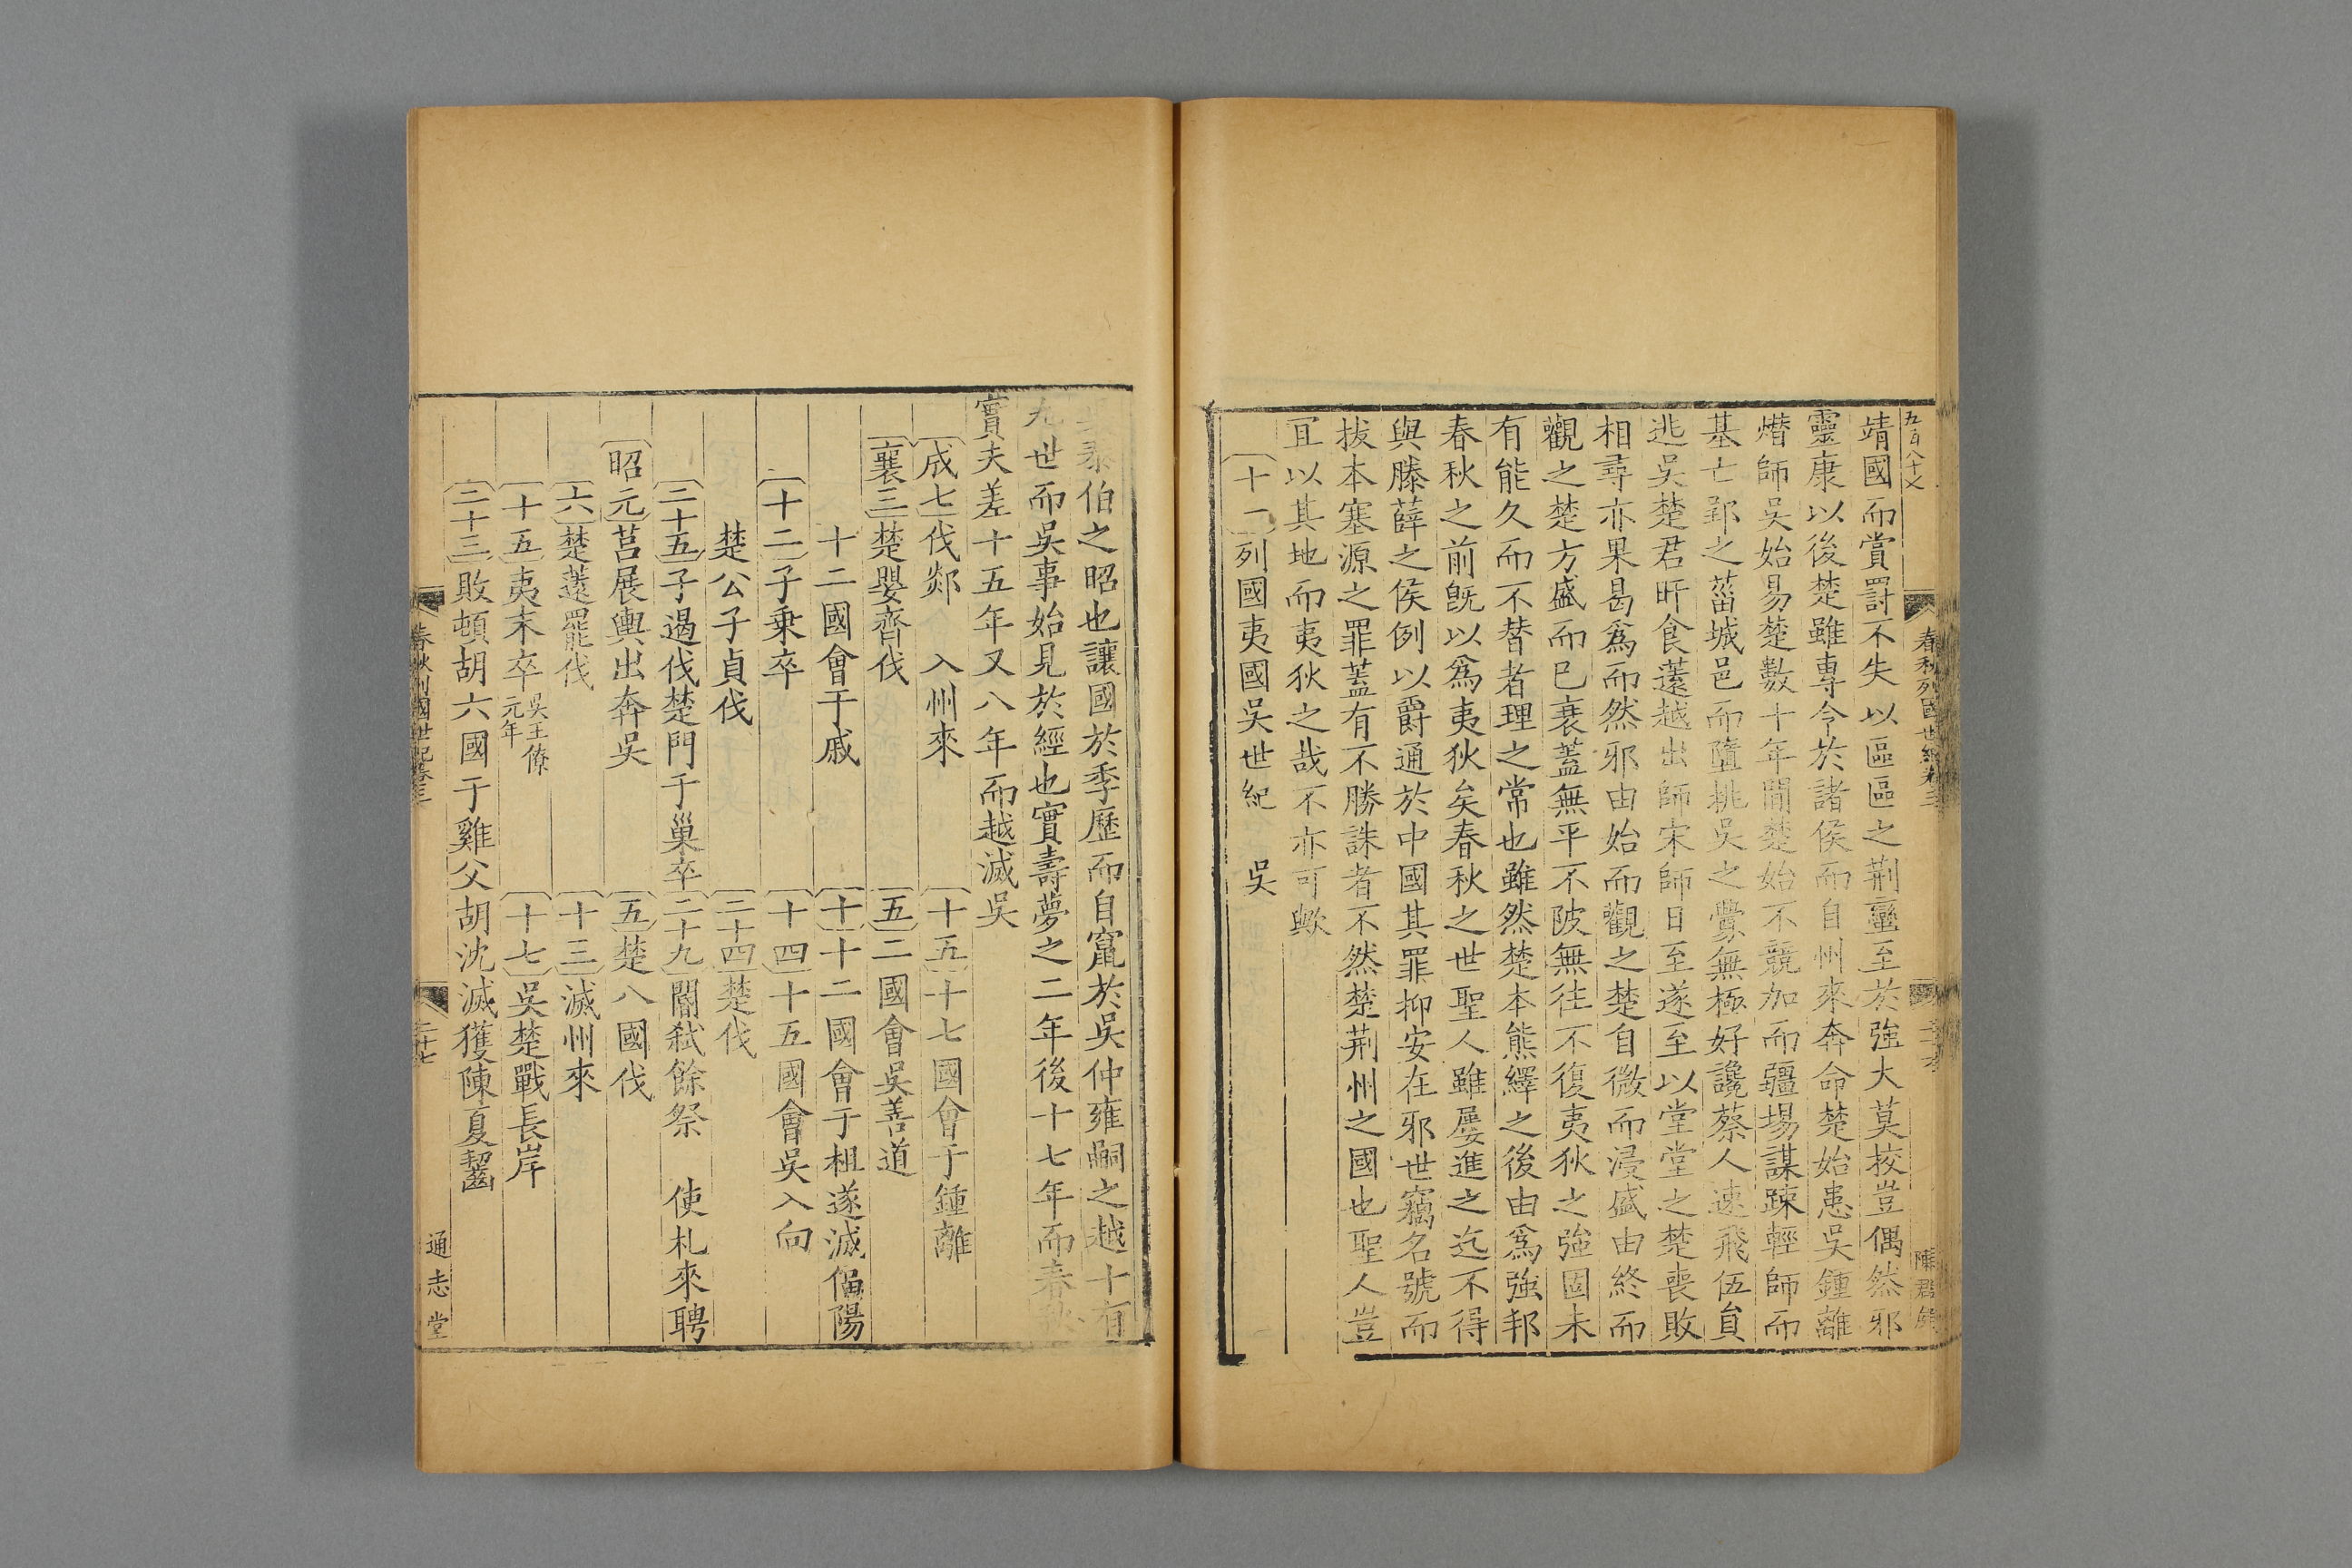 五百八十七
春秋列國世紀卷三
三十六
陳君錫
靖國而賞罸不失以區區之荆蠻至於強大莫挍豈偶然邪
靈康以後楚雖專令於諸侯而自州來奔命楚始患吳鍾離
熸師吳始易楚數十年間楚始不競加而疆場謀踈輕師而
基亡郢之菑城邑而墮挑吳之釁無極好讒蔡人速飛伍員
逃吳楚君旰食薳越出師宋師日至遂至以堂堂之楚喪敗
相尋亦果曷爲而然邪由始而觀之楚自微而浸盛由終而
觀之楚方盛而已衰蓋無平不陂無往不復夷狄之強固未
有能久而不替者理之常也雖然楚本熊繹之後由爲強邦
春秋之前旣以爲夷狄矣春秋之世聖人雖屡進之迄不得
與滕薛之侯例以爵通於中國其罪抑安在邪世竊名號而
拔本塞源之罪蓋有不勝誅者不然楚荆州之國也聖人豈
冝以其地而夷狄之哉不亦可歟
十一 列國夷國吳世紀 吳
泰伯之昭也讓國於季歷而自竄於吳仲雍嗣之越十有
九世而吳事始見於經也實壽夢之二年後十七年而春秋
實夫差十五年又八年而越滅吳
成七 伐郯 入州來 十五 十七國會于鍾離
襄三 楚嬰齊伐 五 二國會吳善道
十二國會于戚 十 十二國會于柤遂滅偪陽
十二 子乗卒 十四 十五國會吳入向
楚公子貞伐 二十四 楚伐
二十五 子遏伐楚門于巢卒 二十九 閽弑餘祭 使札來聘
昭元 莒展輿出奔吳 五 楚八國伐
六 楚薳罷伐 十三 滅州來
十五 夷末卒 吳王僚元年 十七 吳楚戰長岸
二十三 敗頓胡六國于雞父胡沈滅獲陳夏齧
春秋列國世紀卷三
三十七
通志堂